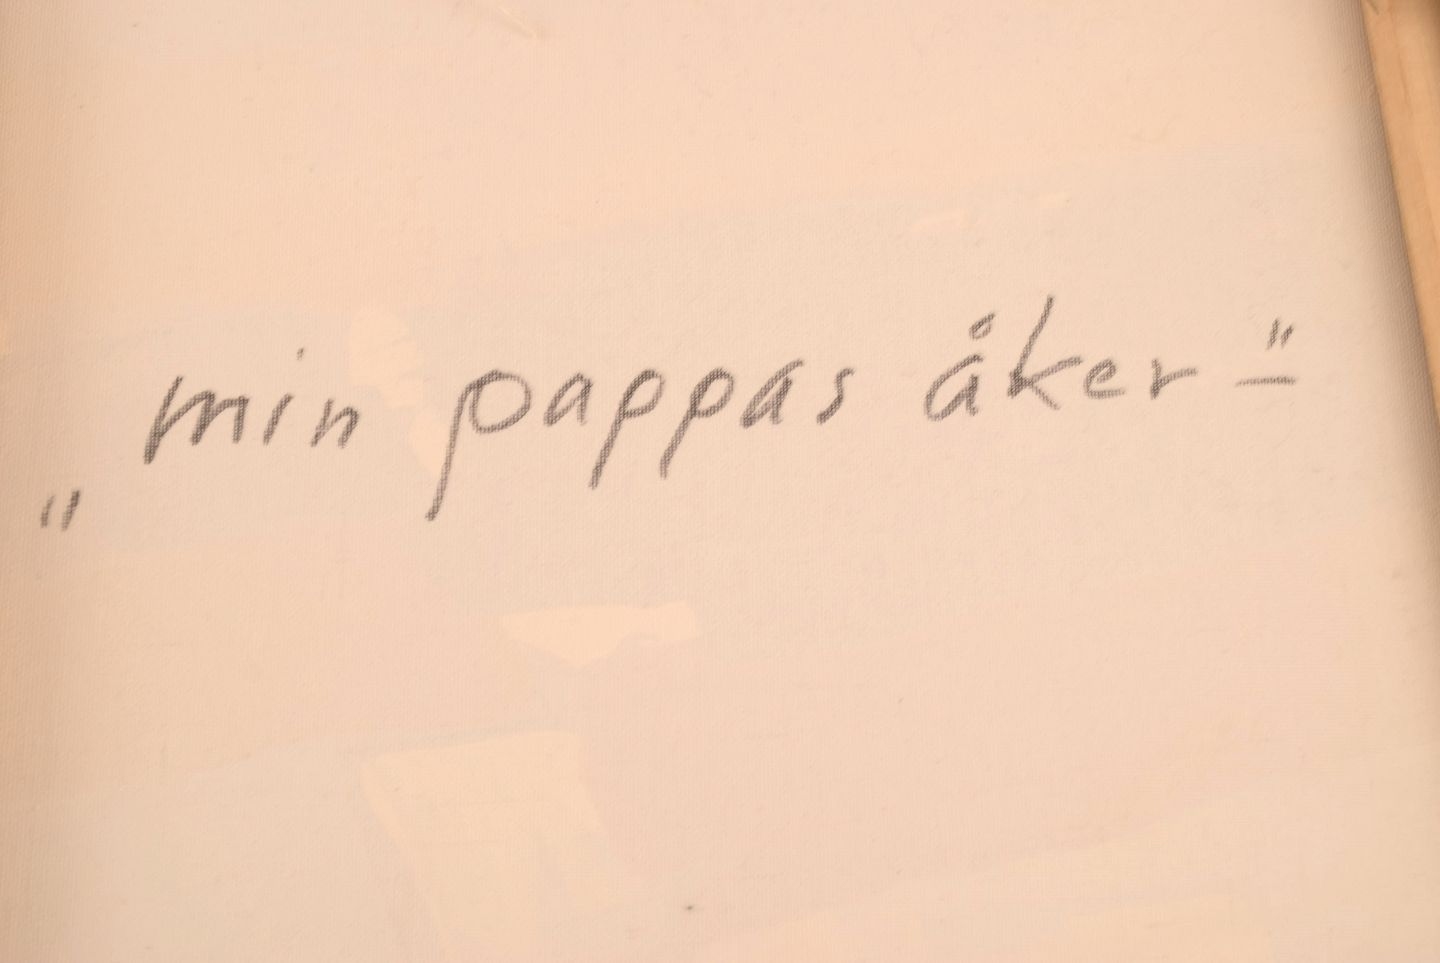 „min pappas åker-"